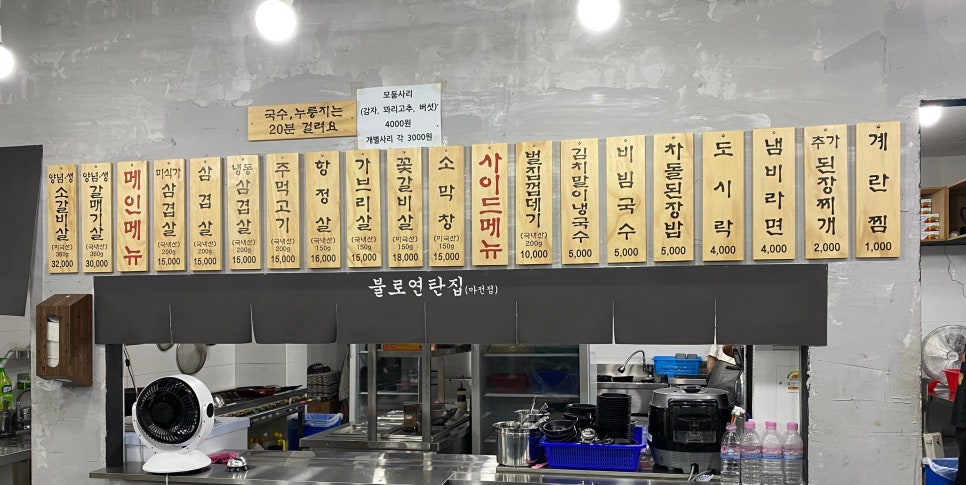 국수, 누룽지는
20분 걸려요
모둠사리
(감자, 꽈리고추, 버섯)
4000원
개별사리 각 3000원
양념·생
소갈비살
(미국산)
360g
32,000
양념·생
갈매기살
(국내산)
360g
30,000
메인메뉴
미식가
삼겹살
(국내산)
200g
15,000
삼겹살
(국내산)
200g
15,000
냉동
삼겹살
(국내산)
200g
15,000
주먹고기
(국내산)
200g
15,000
항정살
(국내산)
150g
16,000
가브리살
(국내산)
150g
15,000
꽃갈비살
(미국산)
150g
18,000
소막창
(미국산)
150g
15,000
사이드메뉴
벌집껍데기
(국내산)
200g
10,000
김치말이냉국수
5,000
비빔국수
5,000
차돌된장밥
5,000
도시락
4,000
냄비라면
4,000
추가
된장찌개
2,000
계란찜
1,000
불로연탄집(마전점)